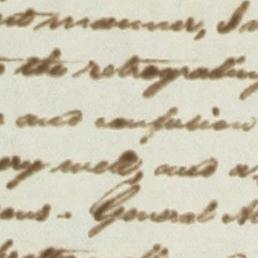 manner, I
the retrograding
and confusion
very well, and a
General A